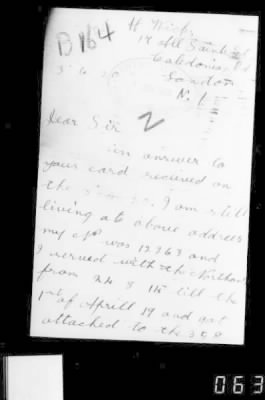 H Wicks
B 164
14 All Saints St
Caledonian Rd
London
N. 1
3. 6. 20
Dear Sir
2
in answer to
your card received on
the I am still
living at above address
my was 12363 and
I served with the Northants
from 24 8 15 till the
1st of Aprill 19 and got
attached to the
063